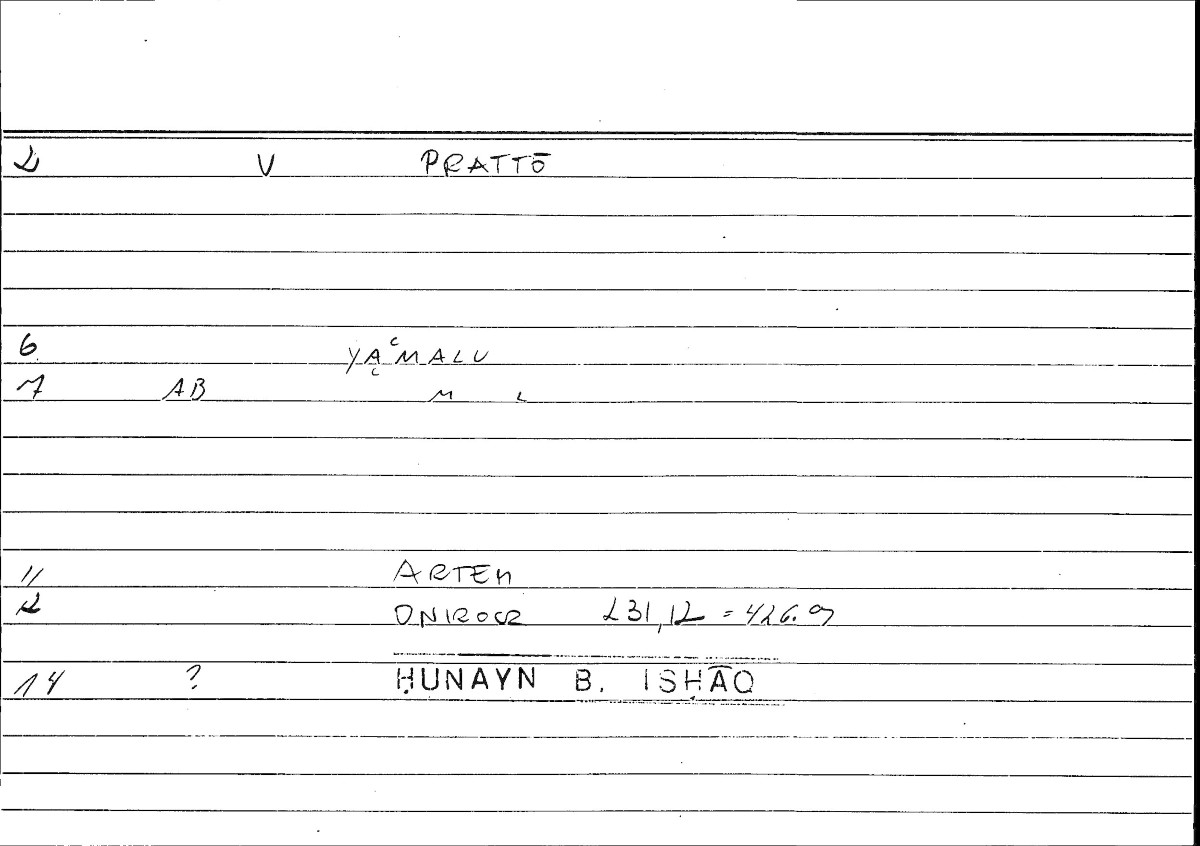 2 V PRATTŌ
6 YAʿMALU
7 AB M L
11 ARTEM
12 ONIROCR 231,12 = 426.9
14 ? ḤUNAYN B. ISḤĀQ